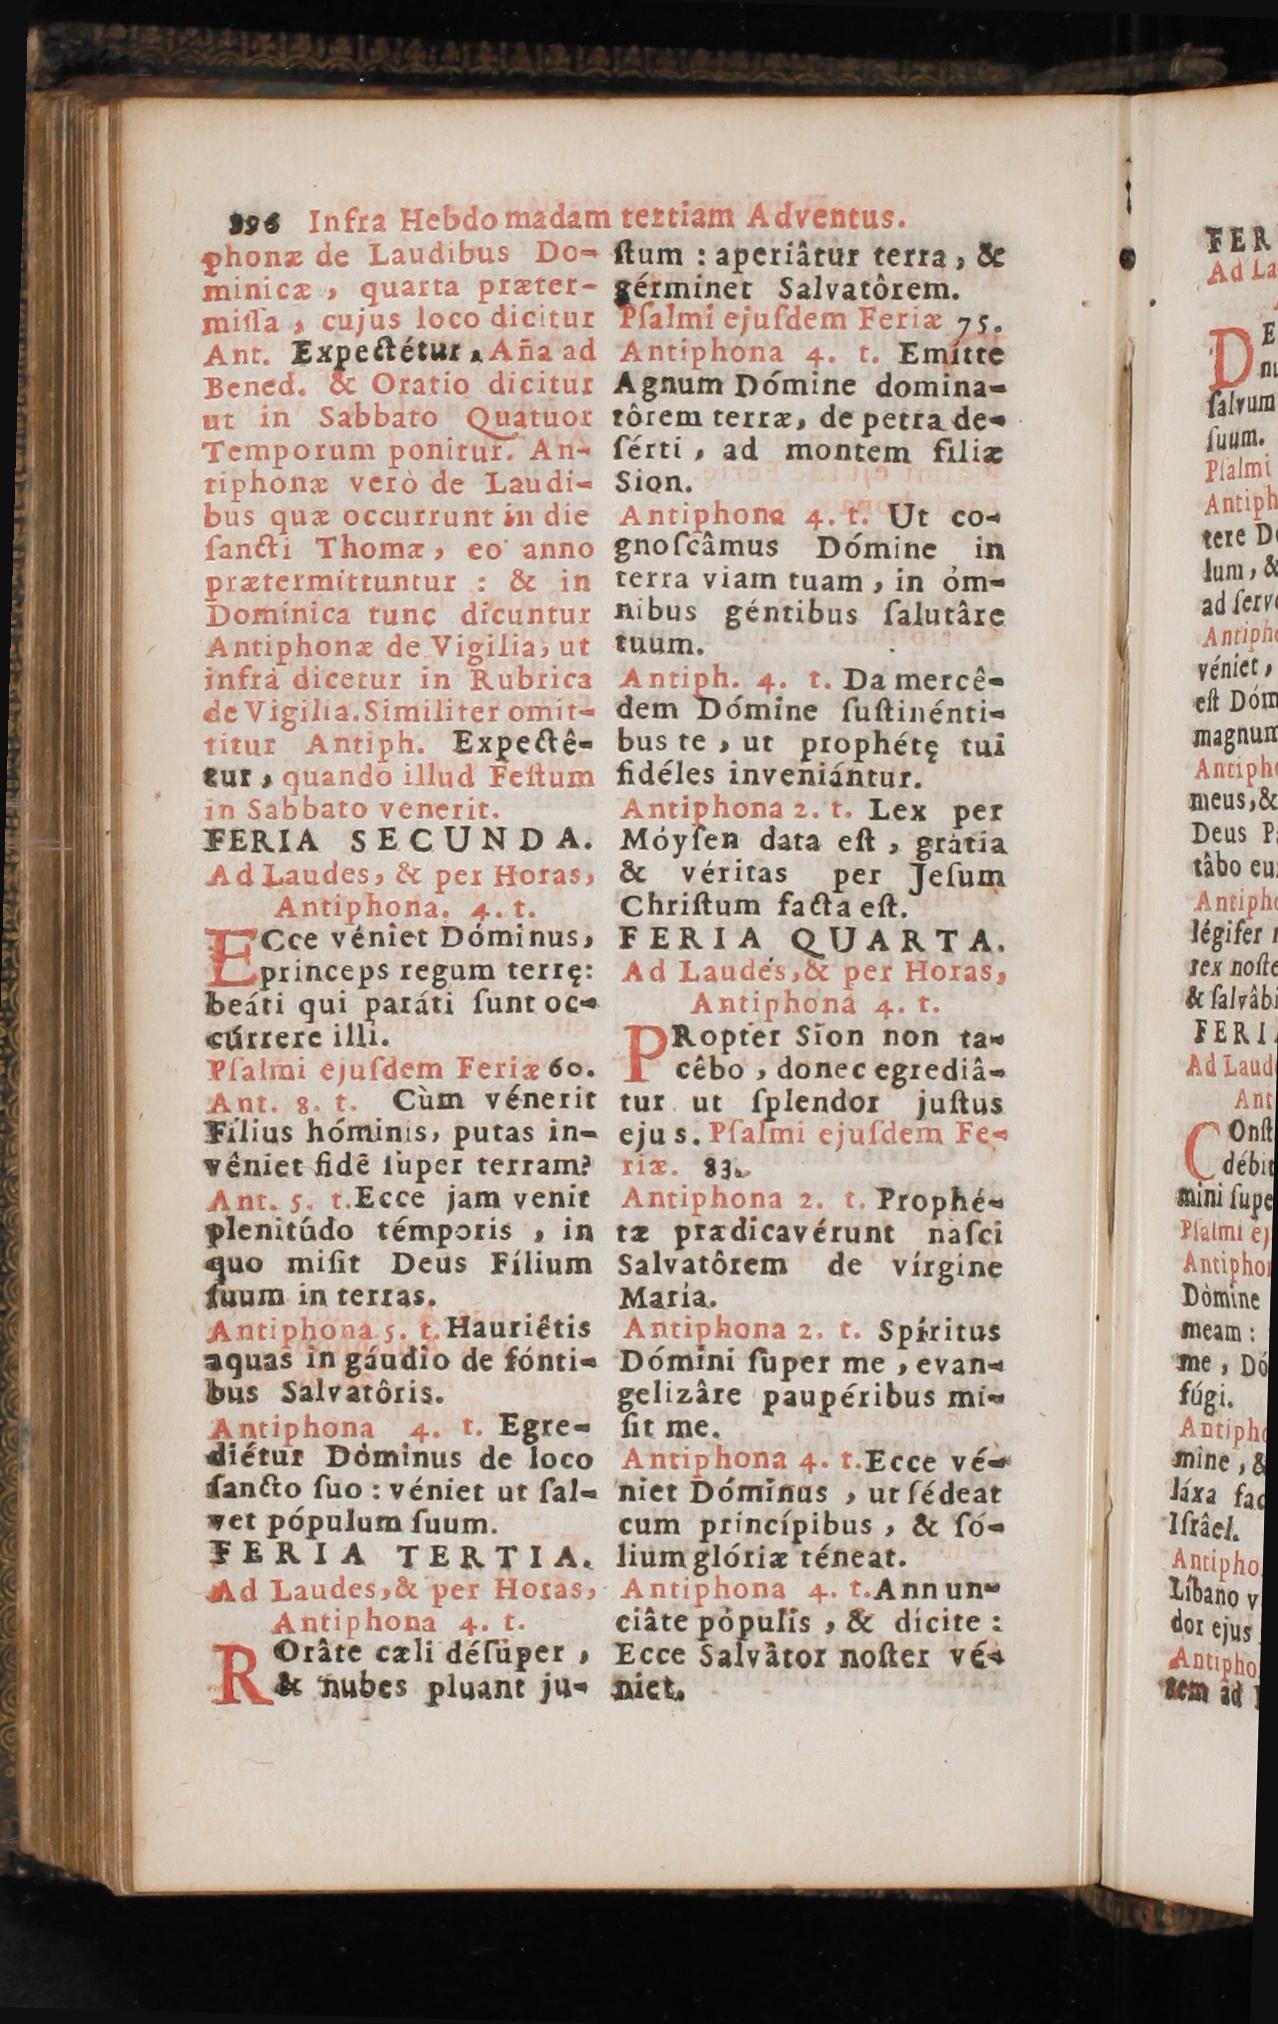 396 Infra Hebdomadam tertiam Adventus.
phonæ de Laudibus Do-
minicæ, quarta præter-
miſſa, cujus loco dicitur
Ant. Expectétur, Aña ad
Bened. & Oratio dicitur
ut in Sabbato Quatuor
Temporum ponitur. An-
tiphonæ verò de Laudi-
bus quæ occurrunt in die
ſancti Thomæ, eo anno
prætermittuntur : & in
Dominica tunc dicuntur
Antiphonæ de Vigilia, ut
infrà dicetur in Rubrica
de Vigilia. Similiter omit-
titur Antiph. Expectê-
tur, quando illud Feſtum
in Sabbato venerit.
FERIA SECUNDA.
Ad Laudes, & per Horas,
Antiphona. 4. t.
ECce véniet Dóminus,
princeps regum terrę:
beáti qui paráti ſunt oc-
cúrrere illi.
Pſalmi ejuſdem Feriæ 60.
Ant. 8. t. Cùm vénerit
Fílius hóminis, putas in-
vêniet fidē ſuper terram?
Ant. 5. t. Ecce jam venit
plenitúdo témporis, in
quo miſit Deus Fílium
ſuum in terras.
Antiphona 5. t. Hauriêtis
aquas in gáudio de fónti-
bus Salvatôris.
Antiphona 4. t. Egre-
diétur Dòminus de loco
ſancto ſuo : véniet ut ſal-
vet pópulum ſuum.
FERIA TERTIA.
Ad Laudes, & per Horas,
Antiphona 4. t.
ROrâte cæli déſùper,
& nubes pluant ju-
ſtum : aperiâtur terra, &
gérminet Salvatôrem.
Pſalmi ejuſdem Feriæ 75.
Antiphona 4. t. Emítte
Agnum Dómine domina-
tôrem terræ, de petra de-
ſérti, ad montem filiæ
Sion.
Antiphona 4. t. Ut co-
gnoſcâmus Dómine in
terra viam tuam, in óm-
nibus géntibus ſalutâre
tuum.
Antiph. 4. t. Da mercê-
dem Dómine ſuſtinénti-
bus te, ut prophétę tui
fidéles inveniántur.
Antiphona 2. t. Lex per
Móyſen data eſt, grátia
& véritas per Jeſum
Chriſtum facta eſt.
FERIA QUARTA.
Ad Laudes, & per Horas,
Antiphona 4. t.
PRopter Sion non ta-
cêbo, donec egrediâ-
tur ut ſplendor juſtus
ejus. Pſalmi ejuſdem Fe-
riæ. 83.
Antiphona 2. t. Prophé-
tæ prædicavérunt naſci
Salvatôrem de vírgine
María.
Antiphona 2. t. Spíritus
Dómini ſuper me, evan-
gelizâre paupéribus mi-
ſit me.
Antiphona 4. t. Ecce vé-
niet Dóminus, ut ſédeat
cum princípibus, & ſó-
lium glóriæ téneat.
Antiphona 4. t. Annun-
ciâte pópulis, & dícite :
Ecce Salvâtor noſter vé-
niet.
FER
Ad La
DE
ſalvum
ſuum.
Pſalmi
Antiph
tere D
lum, &
ad ſerv
Antiph
véniet,
eſt Dóm
magnum
Antiph
meus, &
Deus P
tâbo eu
Antiph
légifer
rex noſte
& ſalvâbi
FERI
Ad Laud
Ant
COnſt
débit
mini ſupe
Pſalmi ej
Antipho
Dòmine
meam :
me, Dó
fúgi.
Antiph
mine, &
láxa fac
Iſrâel.
Antipho
Líbano v
dor ejus
Antipho